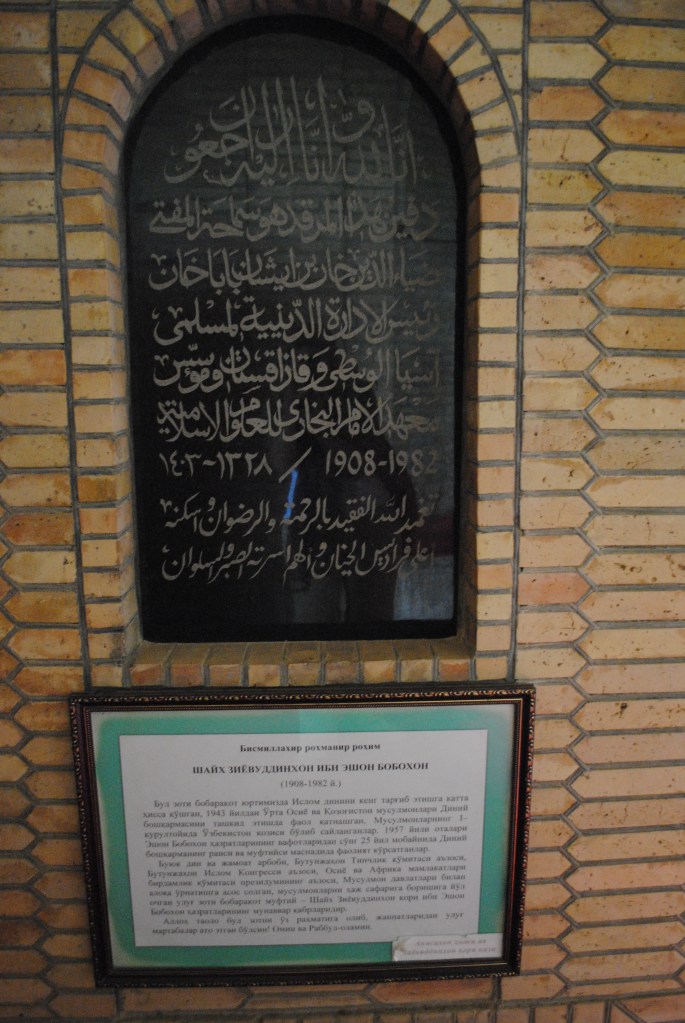 إنا لله وإنا إليه راجعون
دفين هذا المرقد هو سماحة المفتي
ضياء الدين خان بن ايشان باباخان
رئيس الادارة الدينية لمسلمي
آسيا الوسطى وقازاقستان ومؤسس
معهد الامام البخاري للعلوم الاسلامية
١٤٠٣-١٣٢٨ / 1908-1982
تغمد الله الفقيد بالرحمة والرضوان واسكنه
اعلى فراديس الجنان والهم اسرته الصبر والسلوان
Бисмиллахир роҳманир роҳим
ШАЙХ ЗИЁВУДДИНХОН ИБН ЭШОН БОБОХОН
(1908-1982 й.)
Бул зоти бобаракот юртимизда Ислом динини кенг тарғиб этишга катта
ҳисса қўшган, 1943 йилдан Ўрта Осиё ва Қозоғистон мусулмонлари Диний
бошқармасини ташкил этишда фаол қатнашган, Мусулмонларнинг 1-
қурултойида Ўзбекистон қозиси бўлиб сайланганлар. 1957 йили оталари
Эшон Бобохон ҳазратларининг вафотларидан сўнг 25 йил мобайнида Диний
бошқарманинг раиси ва муфтийси мақомида фаолият кўрсатганлар.
Буюк дин ва жамоат арбоби, Бутунжаҳон Тинчлик қўмитаси аъзоси,
Бутунжаҳон Ислом Конгресси аъзоси, Осиё ва Африка мамлакатлари
бирдамлик қўмитаси президиумининг аъзоси, Мусулмон давлатлари билан
алоқа ўрнатишга асос солган, мусулмонларни ҳаж сафарига боришига йўл
очган улуғ зоти бобаракот муфтий – Шайх Зиёвуддинхон қори ибн Эшон
Бобохон ҳазратларининг мунаввар қабрларидир.
Аллоҳ таоло бул зотни ўз раҳматига олиб, жаннатларидан улуғ
мартабалар ато этган бўлсин! Омин ва Раббул-оламин.